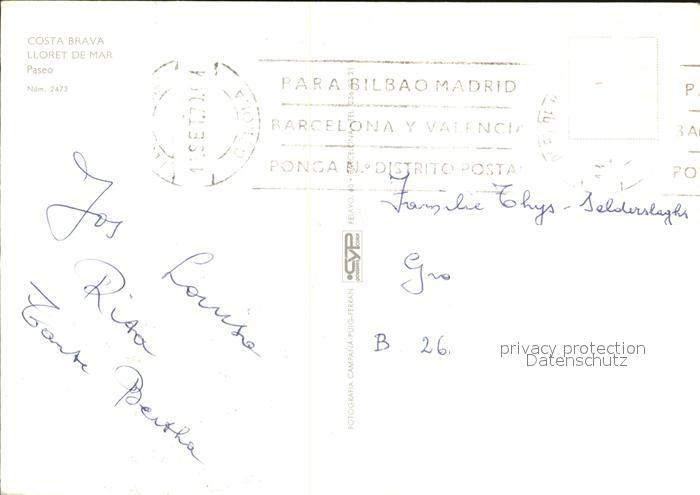 COSTA BRAVA
LLORET DE MAR
Paseo
Núm. 2473
PARA BILBAO MADRID
BARCELONA Y VALENCIA
PONGA N.º DISTRITO POSTAL
Jos
Louisa
Rita
Tante Bertha
Familie Thys - Selderslaghs
B 26.
privacy protection
Datenschutz
CYP
FOTOGRAFIA CAMPAÑA-PUIG-FERRÁN